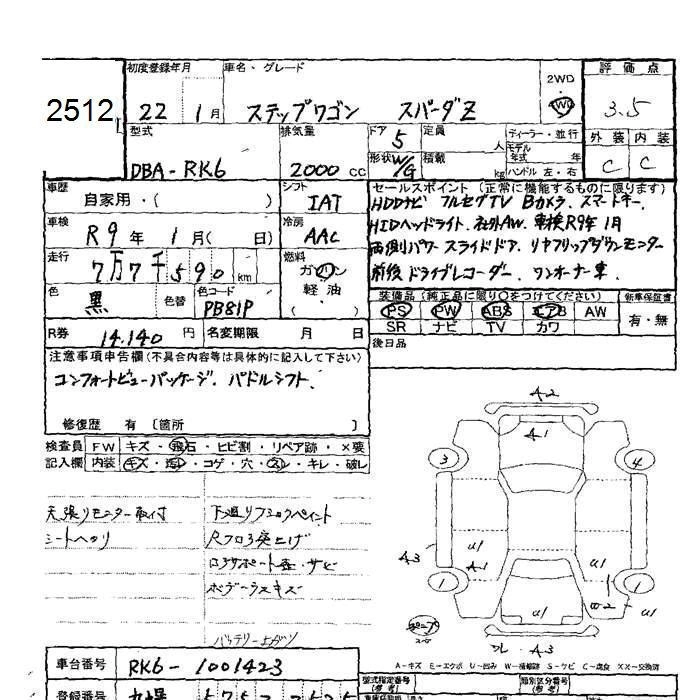 初度登録年月
車名・グレード
2WD
4WD
評価点
2512
22 1月
ステップワゴン スパーダZ
3.5
型式
DBA-RK6
排気量
2000 cc
ドア
5
定員
人
形状 W/G
積載
kg
ディーラー・並行
モデル年式 年
ハンドル 左・右
外装 内装
C C
車歴
自家用・( )
シフト
IAT
セールスポイント(正常に機能するものに限ります)
HDDナビ フルセグTV Bカメラ. スマートキー.
HIDヘッドライト. 社外AW. 車検R9年 1月
両側パワースライドドア. リヤフリップダウンモニター
前後ドライブレコーダー. ワンオーナー車.
車検
R9年 1月( 日)
冷房
AAC
走行
7万7千590km
燃料
ガソリン
軽油
( )
色
黒
色替
色コード
PB81P
装備品(純正品に限り○をつけてください)
新車保証書
PS PW ABS エアB AW
SR ナビ TV カワ
有・無
R券
14.140円
名変期限 月 日
後日品
注意事項申告欄(不具合内容等は具体的に記入して下さい)
コンフォートビューパッケージ. パドルシフト.
修復歴 有〔箇所 〕
検査員 FW キズ・飛石・ヒビ割・リペア跡・×要
記入欄 内装 キズ・汚れ・コゲ・穴・スレ・キレ・破レ
天張りモニター取付
シートヘタリ
下廻りフックペイント
Rフロア突上げ
コアサポート歪・サビ
ボデーラスキズ
A2
A1
3
4
A3
u1
A1
u1
1
1
W2
u1
u1
A3
A-キズ E-エクボ U-凹み W-補修跡 S-サビ C-腐食 XX-交換済
車台番号
RK6-1001423
型式指定番号
(参考)
類別区分番号
(参考)
登録番号